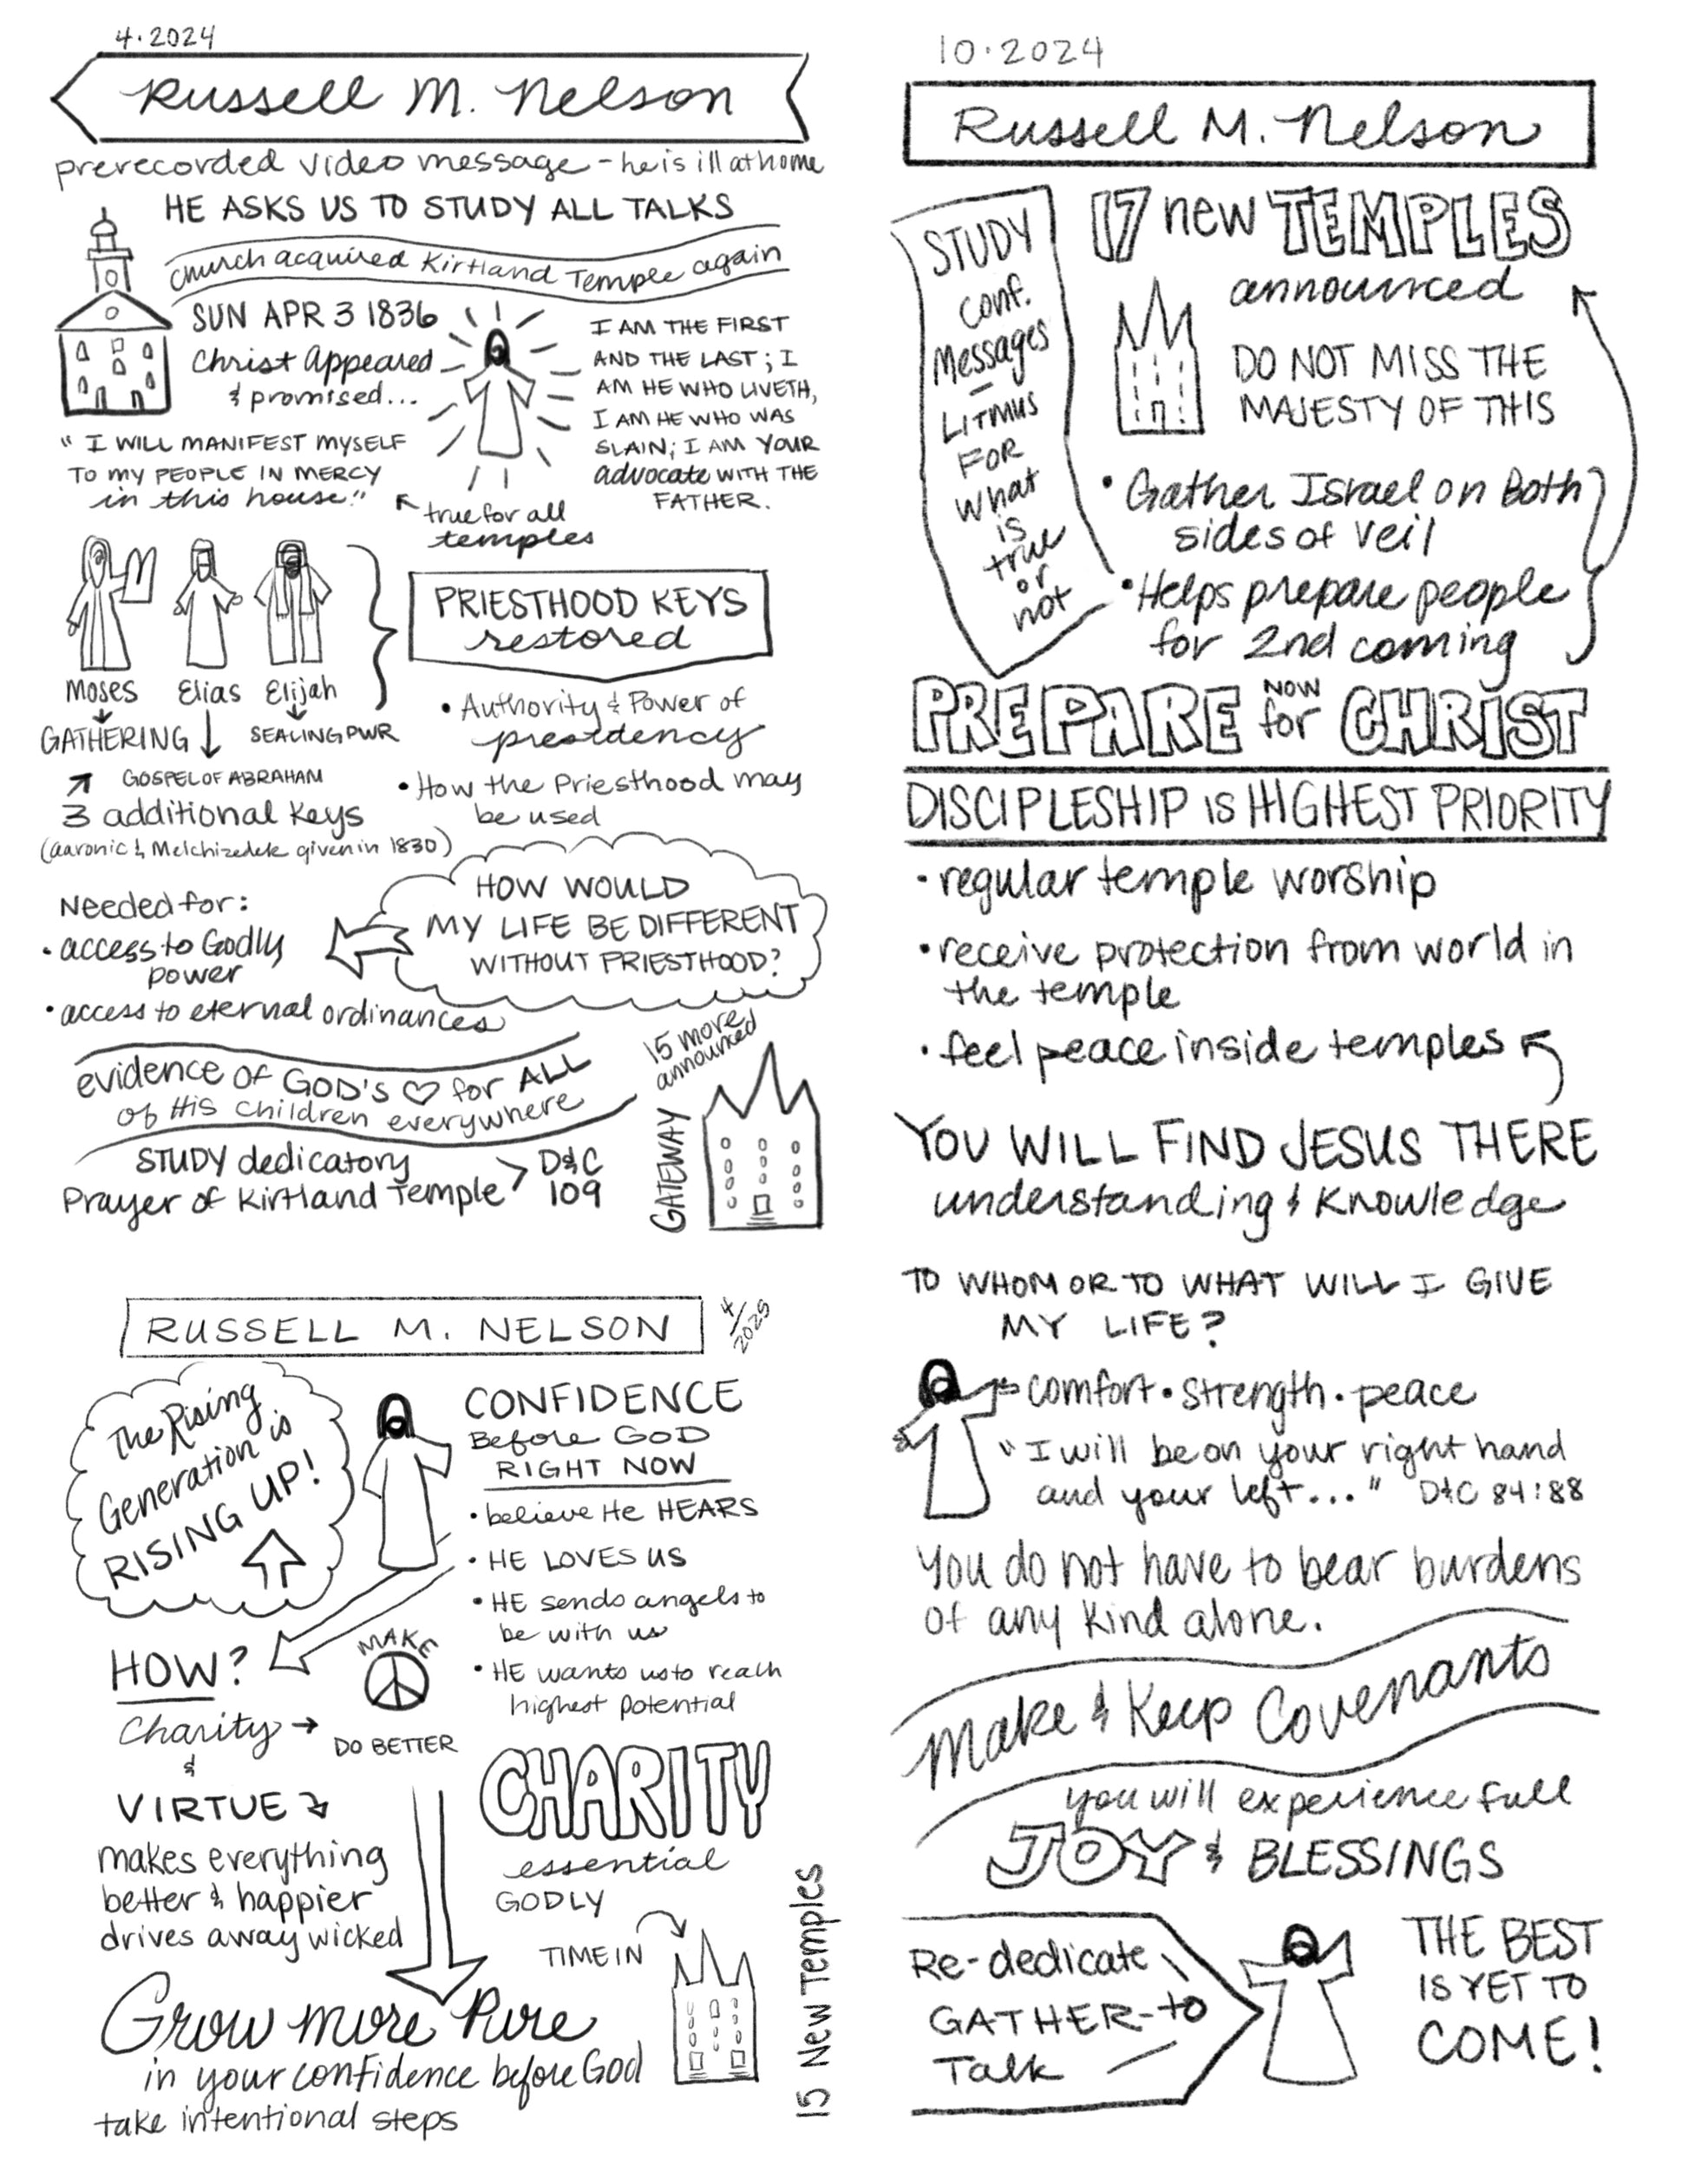 4.2024
Russell M. Nelson
prerecorded video message - he is ill at home
HE ASKS US TO STUDY ALL TALKS
church acquired Kirtland Temple again
SUN APR 3 1836
Christ Appeared
& promised...
"I WILL MANIFEST MYSELF
TO MY PEOPLE IN MERCY
in this house."
true for all
temples
I AM THE FIRST
AND THE LAST; I
AM HE WHO LIVETH,
I AM HE WHO WAS
SLAIN; I AM YOUR
advocate WITH THE
FATHER.
Moses
Elias
Elijah
GATHERING
SEALING PWR
GOSPEL OF ABRAHAM
3 additional Keys
(aaronic & Melchizedek given in 1830)
PRIESTHOOD KEYS
restored
• Authority & Power of
presidency
• How the Priesthood may
be used
HOW WOULD
MY LIFE BE DIFFERENT
WITHOUT PRIESTHOOD?
Needed for:
• access to Godly
power
• access to eternal ordinances
evidence of GOD'S ♡ for ALL
of His children everywhere
15 more
announced
GATEWAY
STUDY dedicatory
Prayer of Kirtland Temple > D&C
109
RUSSELL M. NELSON
4/2025
The Rising
Generation is
RISING UP!
CONFIDENCE
Before GOD
RIGHT NOW
• believe He HEARS
• HE LOVES US
• HE sends angels to
be with us
• HE wants us to reach
highest potential
HOW?
Charity →
&
VIRTUE
makes everything
better & happier
drives away wicked
MAKE
DO BETTER
CHARITY
essential
GODLY
TIME IN
15 New Temples
Grow more Pure
in your confidence before God
take intentional steps
10.2024
Russell M. Nelson
STUDY
conf.
Messages
–
LITMUS
FOR
what
is
true
or
not
17 new TEMPLES
announced
DO NOT MISS THE
MAJESTY OF THIS
• Gather Israel on Both
sides of veil
• Helps prepare people
for 2nd coming
PREPARE NOW for CHRIST
DISCIPLESHIP IS HIGHEST PRIORITY
• regular temple worship
• receive protection from world in
the temple
• feel peace inside temples
YOU WILL FIND JESUS THERE
understanding & Knowledge
TO WHOM OR TO WHAT WILL I GIVE
MY LIFE?
comfort • strength • peace
"I will be on your right hand
and your left..." D&C 84:88
You do not have to bear burdens
of any kind alone.
Make & Keep Covenants
you will experience full
JOY & BLESSINGS
Re-dedicate
GATHER-to
Talk
THE BEST
IS YET TO
COME!